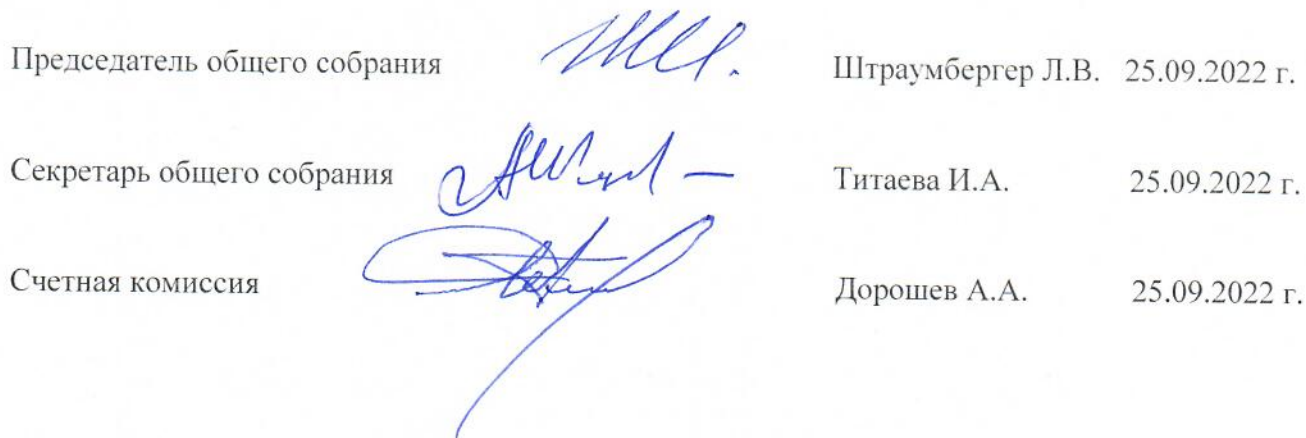 Председатель общего собрания Штраумбергер Л.В. 25.09.2022 г.
Секретарь общего собрания Титаева И.А. 25.09.2022 г.
Счетная комиссия Дорошев А.А. 25.09.2022 г.